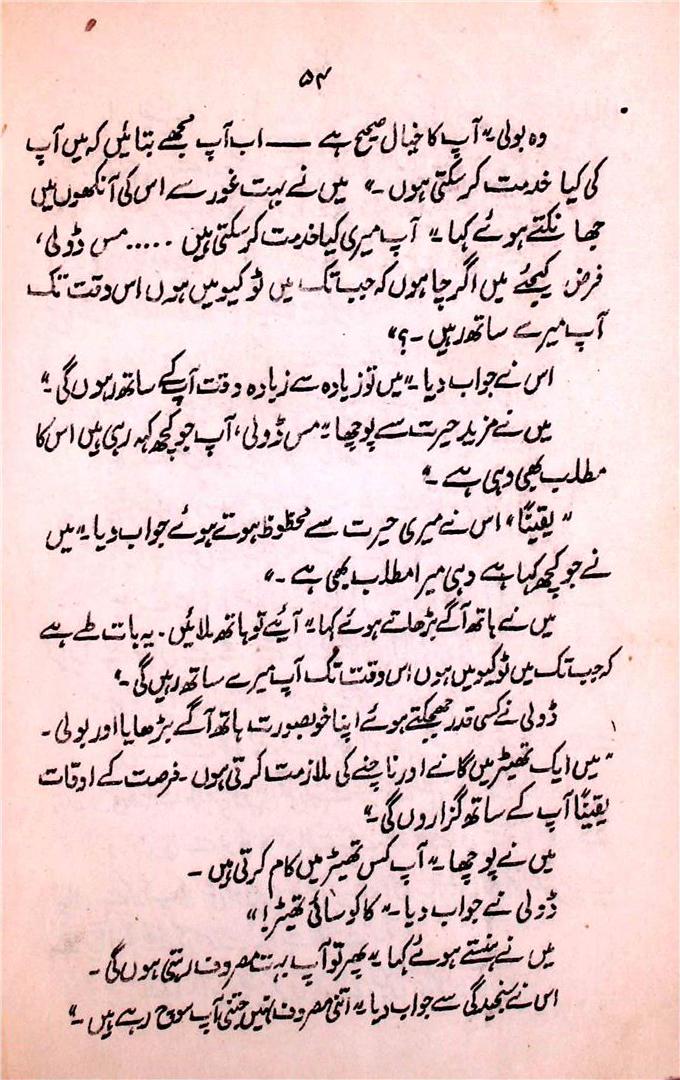 ۵۴
وہ بولی۔" آپ کا خیال صحیح ہے —— اب آپ مجھے بتائیں کہ میں آپ
کی کیا خدمت کر سکتی ہوں۔" میں نے بہت غور سے اس کی آنکھوں میں
جھانکتے ہوئے کہا۔" آپ میری کیا خدمت کر سکتی ہیں ..... مس ڈولی،
فرض کیجئے میں اگر چاہوں کہ جب تک میں ٹوکیو میں ہوں اس وقت تک
آپ میرے ساتھ رہیں۔؟"
اس نے جواب دیا۔" میں تو زیادہ سے زیادہ وقت آپ کے ساتھ رہوں گی۔"
میں نے مزید حیرت سے پوچھا۔" مس ڈولی، آپ جو کچھ کہہ رہی ہیں اس کا
مطلب بھی وہی ہے۔"
" یقیناً" اس نے میری حیرت سے محظوظ ہوتے ہوئے جواب دیا۔" میں
نے جو کچھ کہا ہے وہی میرا مطلب بھی ہے۔"
میں نے ہاتھ آگے بڑھاتے ہوئے کہا۔" آیئے تو ہاتھ ملائیں۔ یہ بات طے ہے
کہ جب تک میں ٹوکیو میں ہوں اس وقت تک آپ میرے ساتھ رہیں گی۔"
ڈولی نے کسی قدر جھجکتے ہوئے اپنا خوبصورت ہاتھ آگے بڑھایا اور بولی۔
" میں ایک تھیٹر میں گانے اور ناچنے کی ملازمت کرتی ہوں۔ فرصت کے اوقات
یقیناً آپ کے ساتھ گزاروں گی۔"
میں نے پوچھا۔" آپ کس تھیٹر میں کام کرتی ہیں۔
ڈولی نے جواب دیا۔" کاکوسائی تھیٹر!"
میں نے ہنستے ہوئے کہا۔" پھر تو آپ بہت مصروف رہتی ہوں گی۔
اس نے سنجیدگی سے جواب دیا۔" اتنی مصروف نہیں جتنی آپ سوچ رہے ہیں۔"